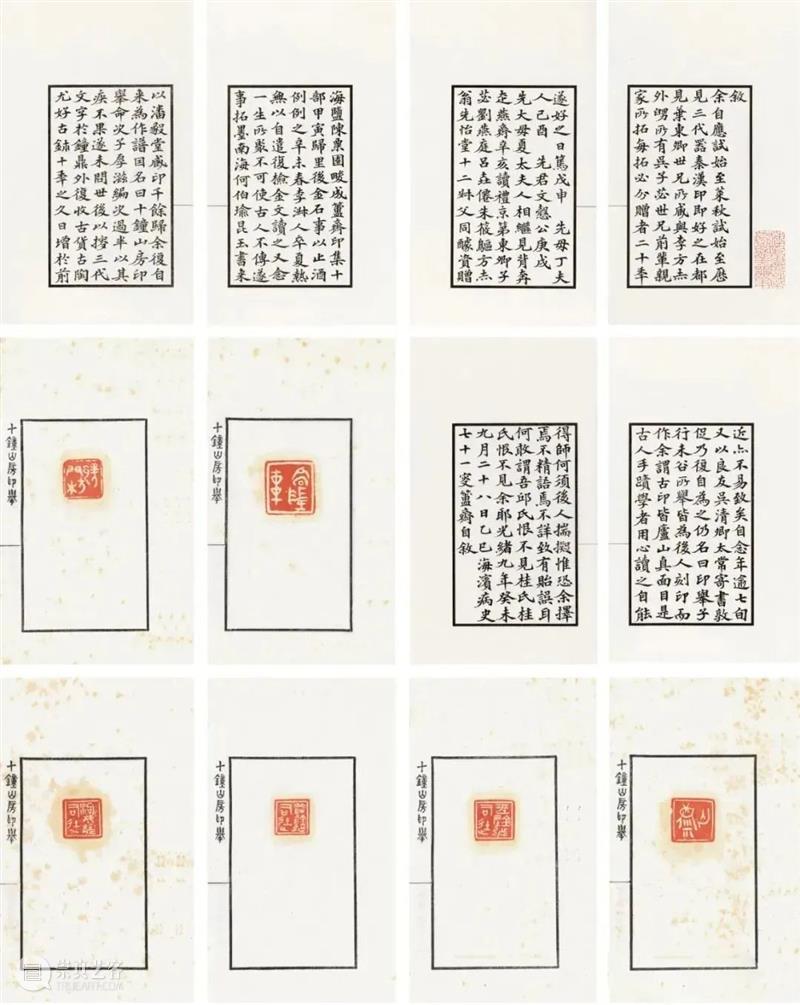 敘
余自應試始至萊秋試始至歷
見三代器秦漢印即好之在都
見葉東卿世兄所臧與李方赤
外舅所有吳子苾世兄前輩親
家所拓每拓必分贈者二十年
遂好之日篤戊申 先母丁夫
人己酉 先君文愨公庚戌
先大母夏太夫人相繼見背奔
走燕齊辛亥讀禮京第東卿子
苾劉燕庭呂堯僊朱筱漚方赤
翁先怡堂十二 父同醵資贈
海鹽陳粟園畯成簠齋印集十
部甲寅歸里後金石事以止酒
例例之辛未春季淋人卒夏熱
無以自遣復撿金文讀之又念
一生所聚不可使古人不傳遂
事拓墨南海何伯瑜昆玉書來
以潘毅堂臧印千餘歸余復自
来為作譜因名曰十鐘山房印
舉命次子厚滋編次過半以其
疾不果遂未問世後以搨三代
文字於鐘鼎外復收古貨古陶
尤好古鉨十年之久日增於前
近亦不易致矣自念年逾七旬
又以良友吳清卿太常寄書敦
促乃復自為之仍名曰印舉子
行未谷所舉皆為後人刻印而
作余謂古印皆廬山真面目是
古人手蹟學者用心讀之自能
得師何須後人揣擬惟恐余擇
焉不精語焉不詳致有貽誤耳
何敢謂吾邱氏恨不見桂氏桂
氏恨不見余耶光緒九年癸未
九月二十八日乙巳海濱病史
七十一叟簠齋自敘
十鐘山房印舉
十鐘山房印舉
十鐘山房印舉
十鐘山房印舉
十鐘山房印舉
十鐘山房印舉
崇真艺客